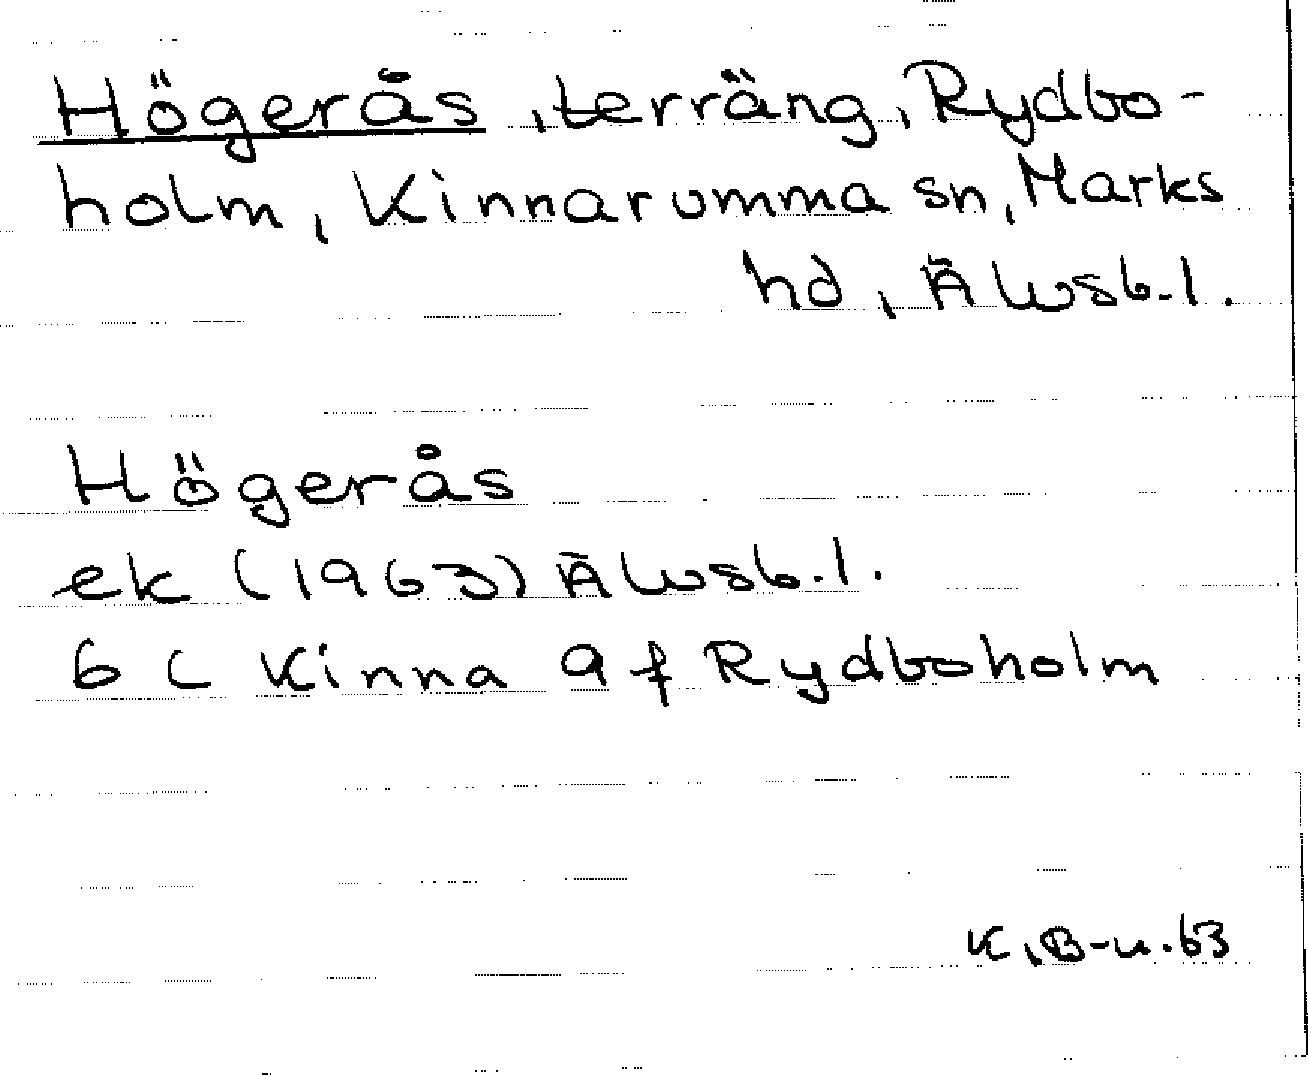 Högerås, terräng, Rydbo-
holm, Kinnarumma sn, Marks
hd, Älvsb. l.
Högerås
ek (1963) Älvsb. l.
6 C Kinna 9 f Rydboholm
K, B-n. 63